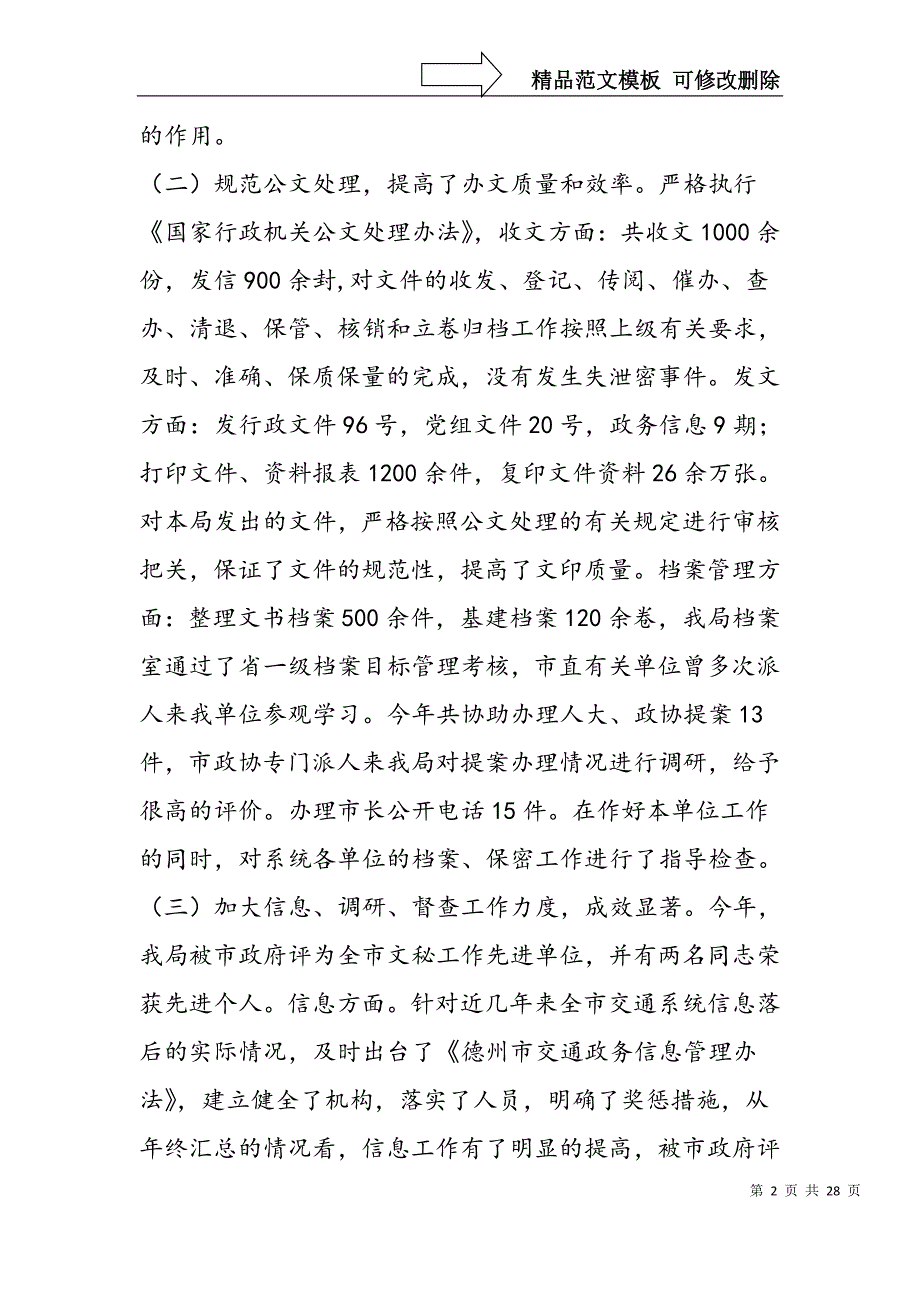 精品范文模板 可修改删除
的作用。
（二）规范公文处理，提高了办文质量和效率。严格执行
《国家行政机关公文处理办法》，收文方面：共收文1000余
份，发信900余封,对文件的收发、登记、传阅、催办、查
办、清退、保管、核销和立卷归档工作按照上级有关要求，
及时、准确、保质保量的完成，没有发生失泄密事件。发文
方面：发行政文件96号，党组文件20号，政务信息9期；
打印文件、资料报表1200余件，复印文件资料26余万张。
对本局发出的文件，严格按照公文处理的有关规定进行审核
把关，保证了文件的规范性，提高了文印质量。档案管理方
面：整理文书档案500余件，基建档案120余卷，我局档案
室通过了省一级档案目标管理考核，市直有关单位曾多次派
人来我单位参观学习。今年共协助办理人大、政协提案13
件，市政协专门派人来我局对提案办理情况进行调研，给予
很高的评价。办理市长公开电话15件。在作好本单位工作
的同时，对系统各单位的档案、保密工作进行了指导检查。
（三）加大信息、调研、督查工作力度，成效显著。今年，
我局被市政府评为全市文秘工作先进单位，并有两名同志荣
获先进个人。信息方面。针对近几年来全市交通系统信息落
后的实际情况，及时出台了《德州市交通政务信息管理办
法》，建立健全了机构，落实了人员，明确了奖惩措施，从
年终汇总的情况看，信息工作有了明显的提高，被市政府评
第 2 页 共 28 页